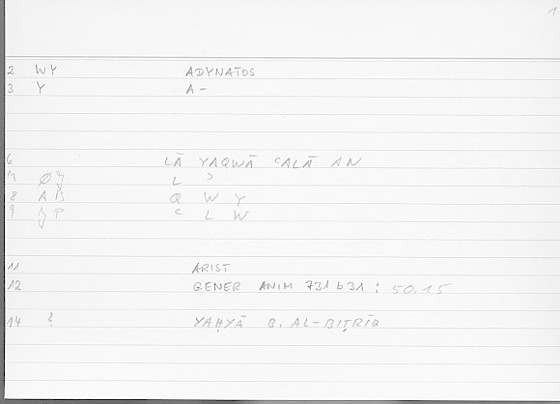 1
2 WY ADYNATOS
3 Y A-
6 LĀ YAQWĀ ʿALĀ AN
7 ØZ L ʾ
8 AB Q W Y
9 ZP ʿ L W
11 ARIST
12 GENER ANIM 731 b 31 : 50.15
14 ? YAḤYĀ B. AL-BIṬRĪQ